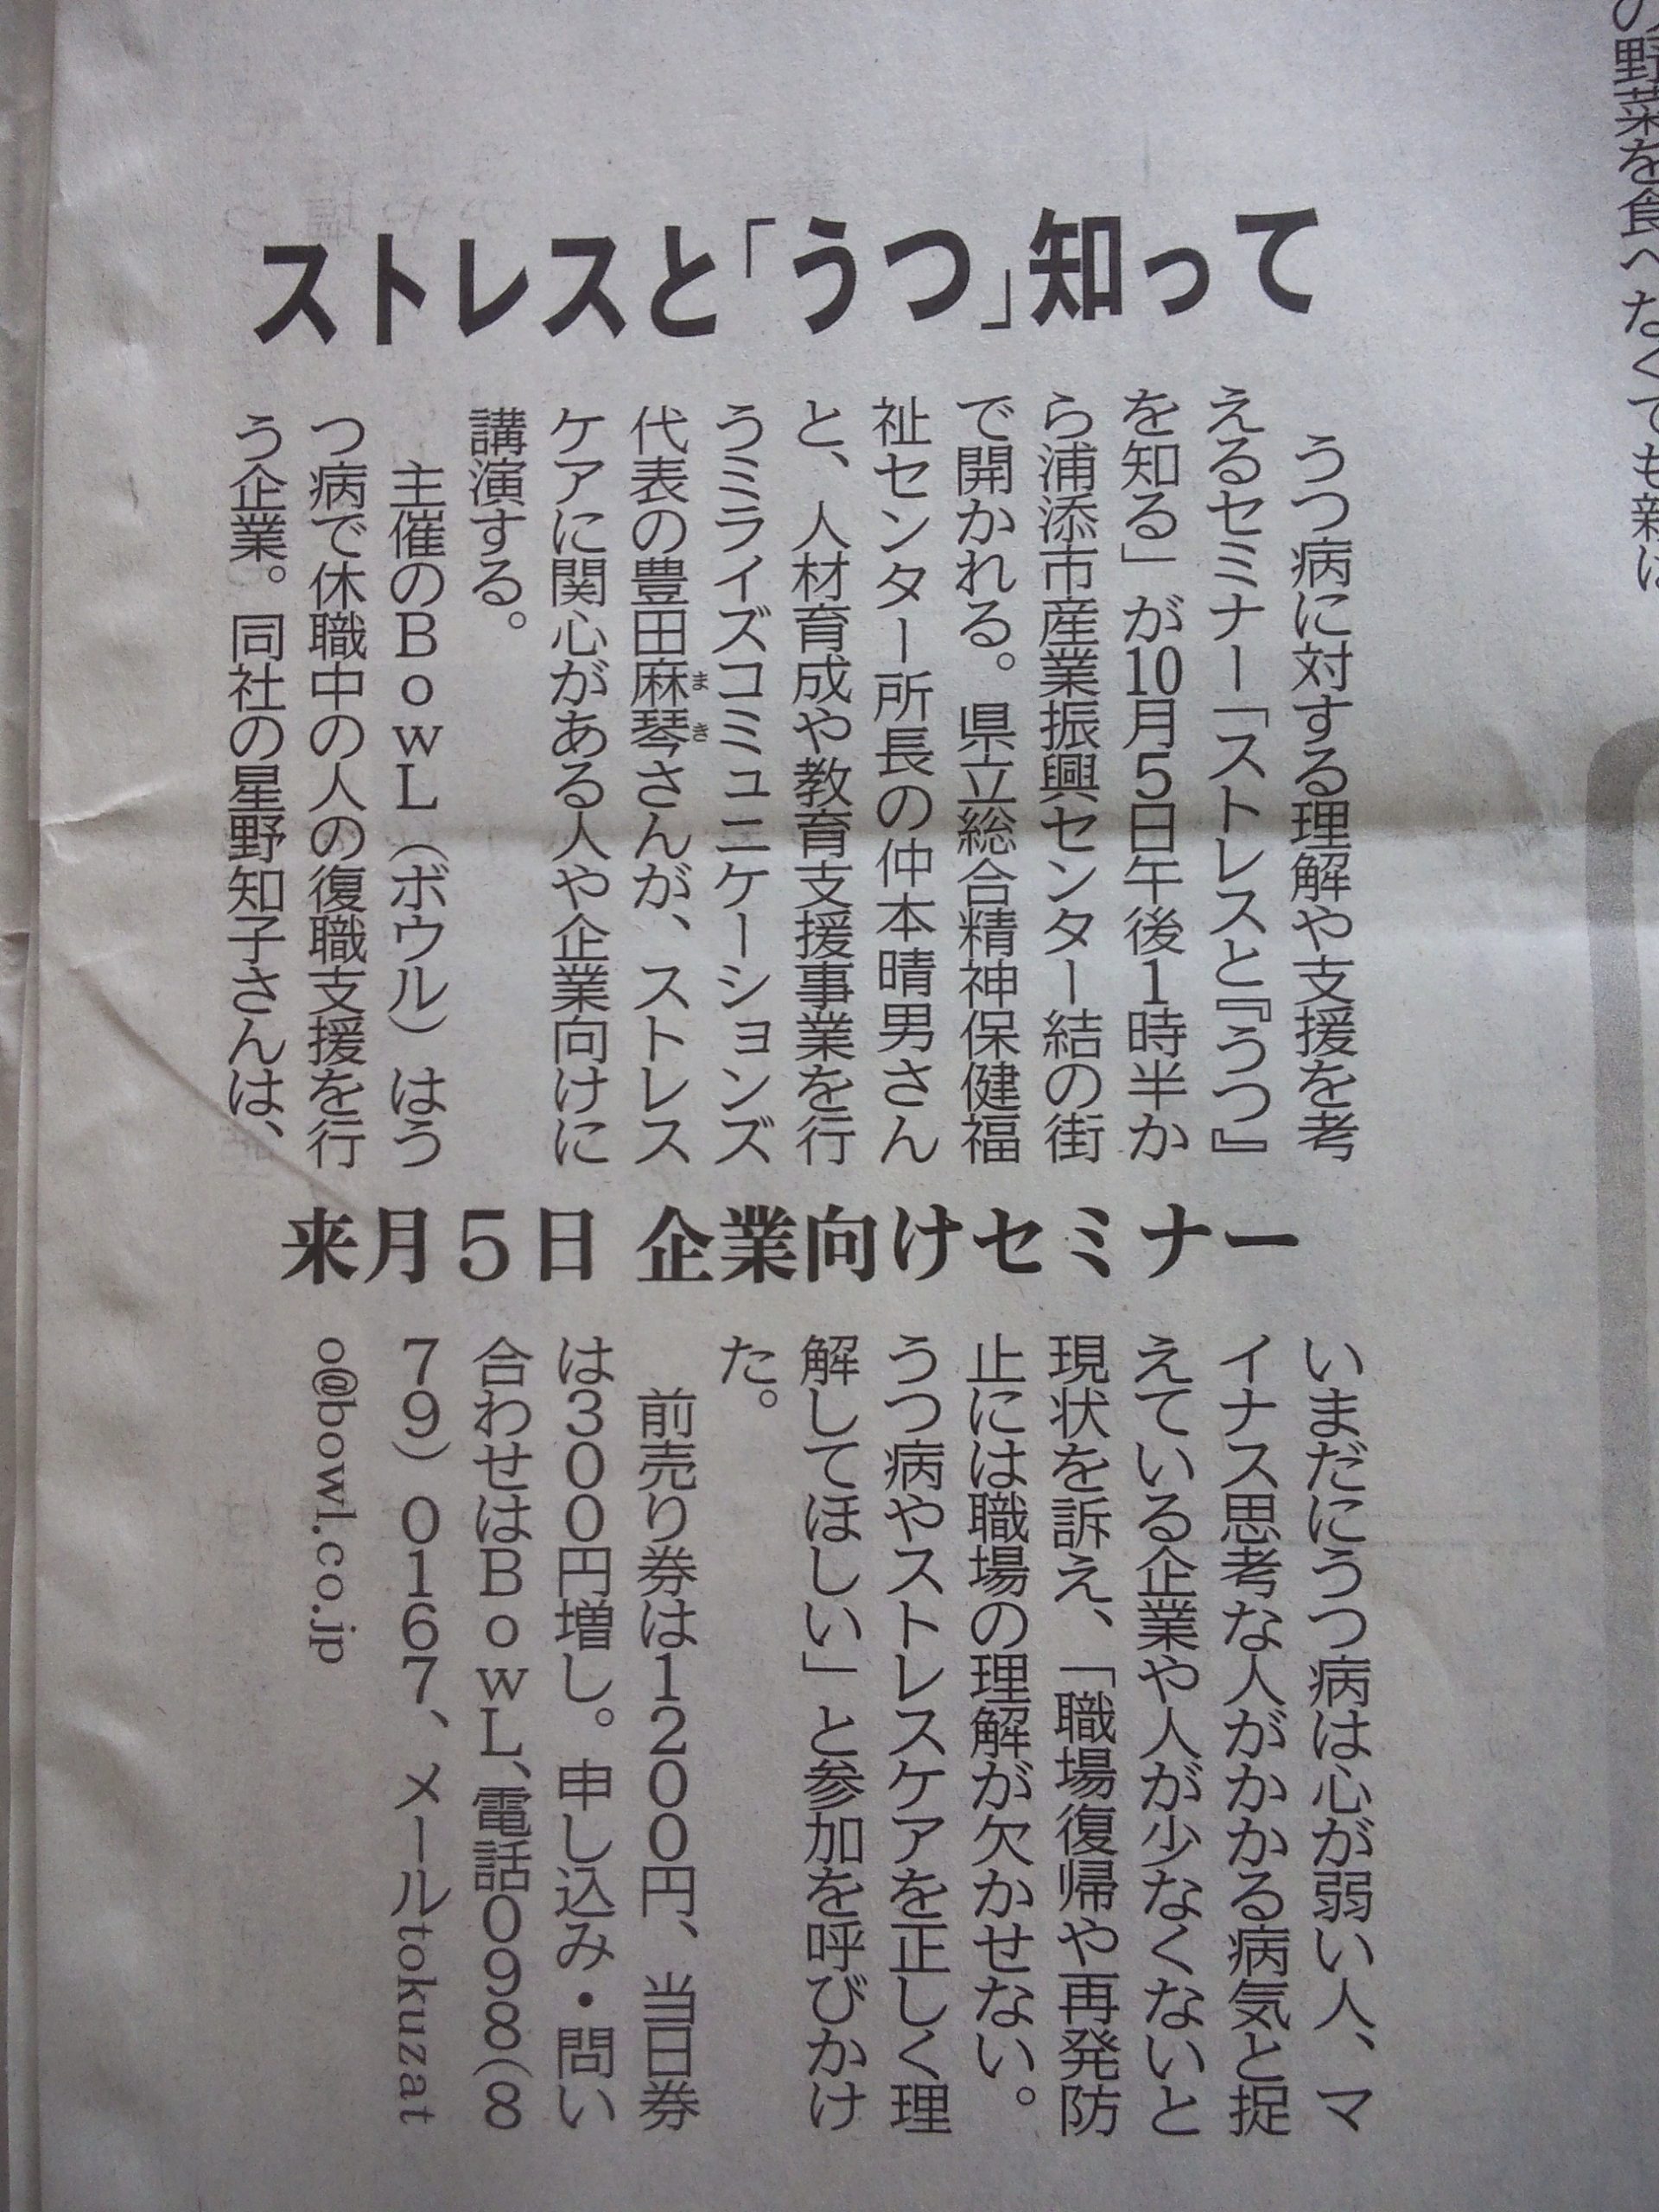 ストレスと「うつ」知って
うつ病に対する理解や支援を考
えるセミナー「ストレスと『うつ』
を知る」が10月5日午後1時半か
ら浦添市産業振興センター結の街
で開かれる。県立総合精神保健福
祉センター所長の仲本晴男さん
と、人材育成や教育支援事業を行
うミライズコミュニケーションズ
代表の豊田麻琴さんが、ストレス
まき
ケアに関心がある人や企業向けに
講演する。
主催のBowL（ボウル）はう
つ病で休職中の人の復職支援を行
う企業。同社の星野知子さんは、
来月5日 企業向けセミナー
いまだにうつ病は心が弱い人、マ
イナス思考な人がかかる病気と捉
えている企業や人が少なくないと
現状を訴え、「職場復帰や再発防
止には職場の理解が欠かせない。
うつ病やストレスケアを正しく理
解してほしい」と参加を呼びかけ
た。
前売り券は1200円、当日券
は300円増し。申し込み・問い
合わせはBowL、電話098（8
79）0167、メールtokuzat
o@bowl.co.jp
の野菜を食べなくても新は